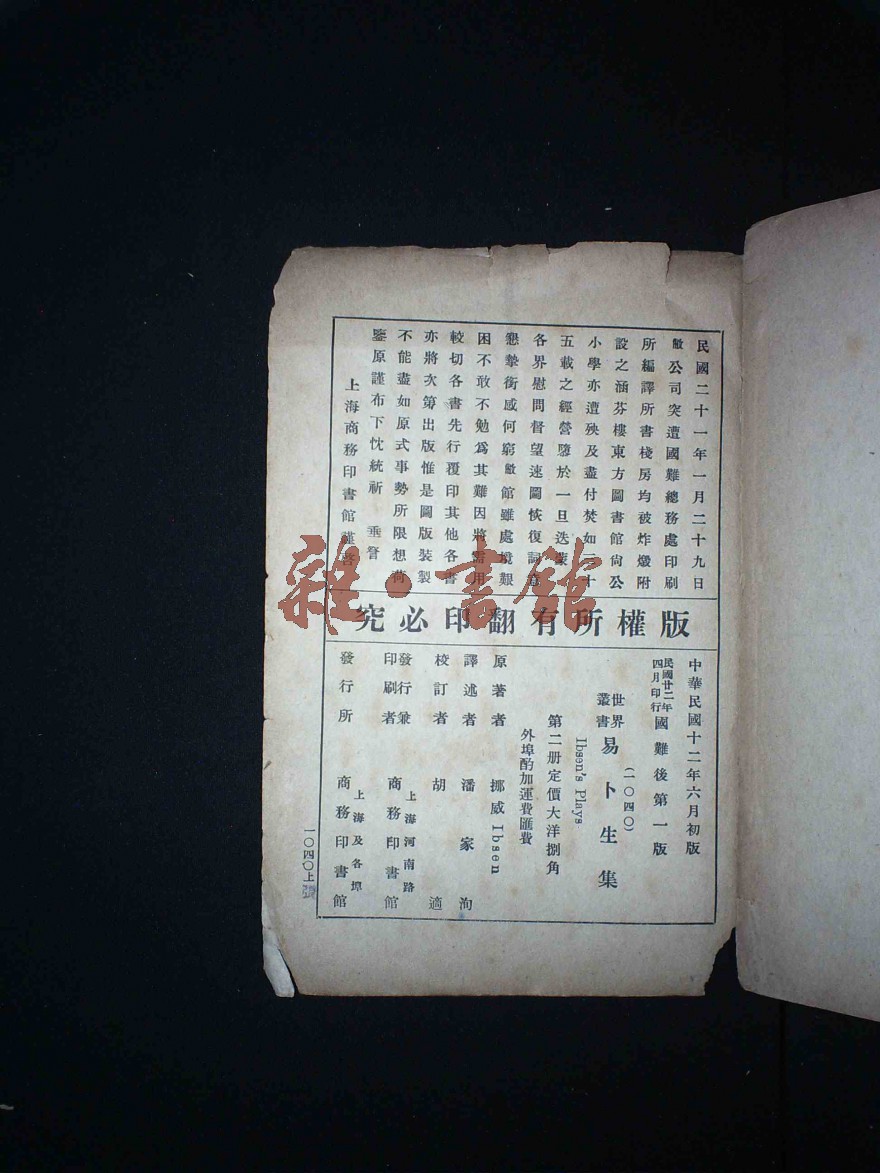 民國二十一年一月二十九日
敝公司突遭國難總務處印刷
所編譯所書棧房均被炸燬附
設之涵芬樓東方圖書館尚公
小學亦遭殃及盡付焚如三十
五載之經營隳於一旦迭蒙
各界慰問督望速圖恢復詞意
懇摯銜感何窮敝館雖處境艱
困不敢不勉為其難因將需用
較切各書先行覆印其他各書
亦將次第出版惟是圖版裝製
不能盡如原式事勢所限想荷
鑒原謹布下忱統祈 垂詧
上海商務印書館謹啓
版權所有翻印必究
中華民國十二年六月初版
民國廿二年四月印行國難後第一版
(一〇四〇)
世界叢書 易卜生集
Ibsen's Plays
第二册定價大洋捌角
外埠酌加運費匯費
原著者 挪威 Ibsen
譯述者 潘家洵
校訂者 胡適
發行兼印刷者 上海河南路商務印書館
發行所 上海及各埠商務印書館
一〇四〇上
張
雜·書館